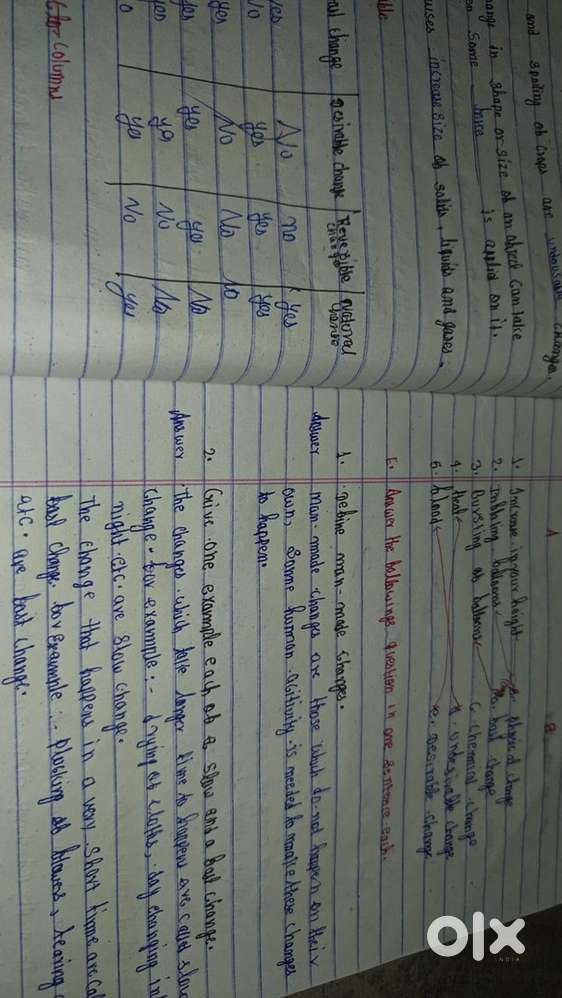 and spoiling of crops are undesirable change.
change in shape or size of an object can take
same force is applid on it.
causes increase size of solids, liquids and gases.
change | Desirable change | Reversible change | Natural change
yes | No | no | yes
No | yes | yes | yes
yes | No | No | no
yes | yes | yes | No
yes | yes | No | No
o | yes | No | yes
columns
A B
1. Increase in your height a. physical change
2. balloons b. fast change
3. Bursting of balloons c. chemical change
4. Heat d. undesirable change
5. flood e. desirable change
E. Answer the followings question in one sentence each.
1. Define man-made changes.
Answer man-made changes are those which do not happen on their
own, some human acitivity is needed to make these changes
to happen.
2. Give one example each of a slow and a fast change.
Answer . The changes which take longer time to happens are called slow
change. for example :- drying of cloths, day changing in
night etc. are slow change.
The change that happens in a very short time are
fast change. for example :- plucking of flowers,
etc. are fast change.
olx
INDIA